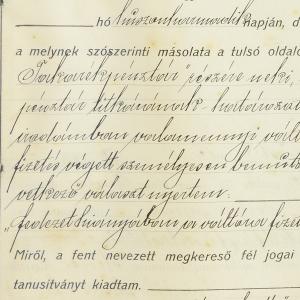 hó huszonharmadik napján, d
a melynek szószerinti másolata a tulsó oldalo
Takarékpénztár" részére neki,
pénztár titkárának határozat
irodámban valamennyi váll
fizetés végett személyesen bemuta
vetkező választ nyertem:
"fedezet hiányában a váltóra fizet
Miről, a fent nevezett megkereső fél jogai
tanusítványt kiadtam.